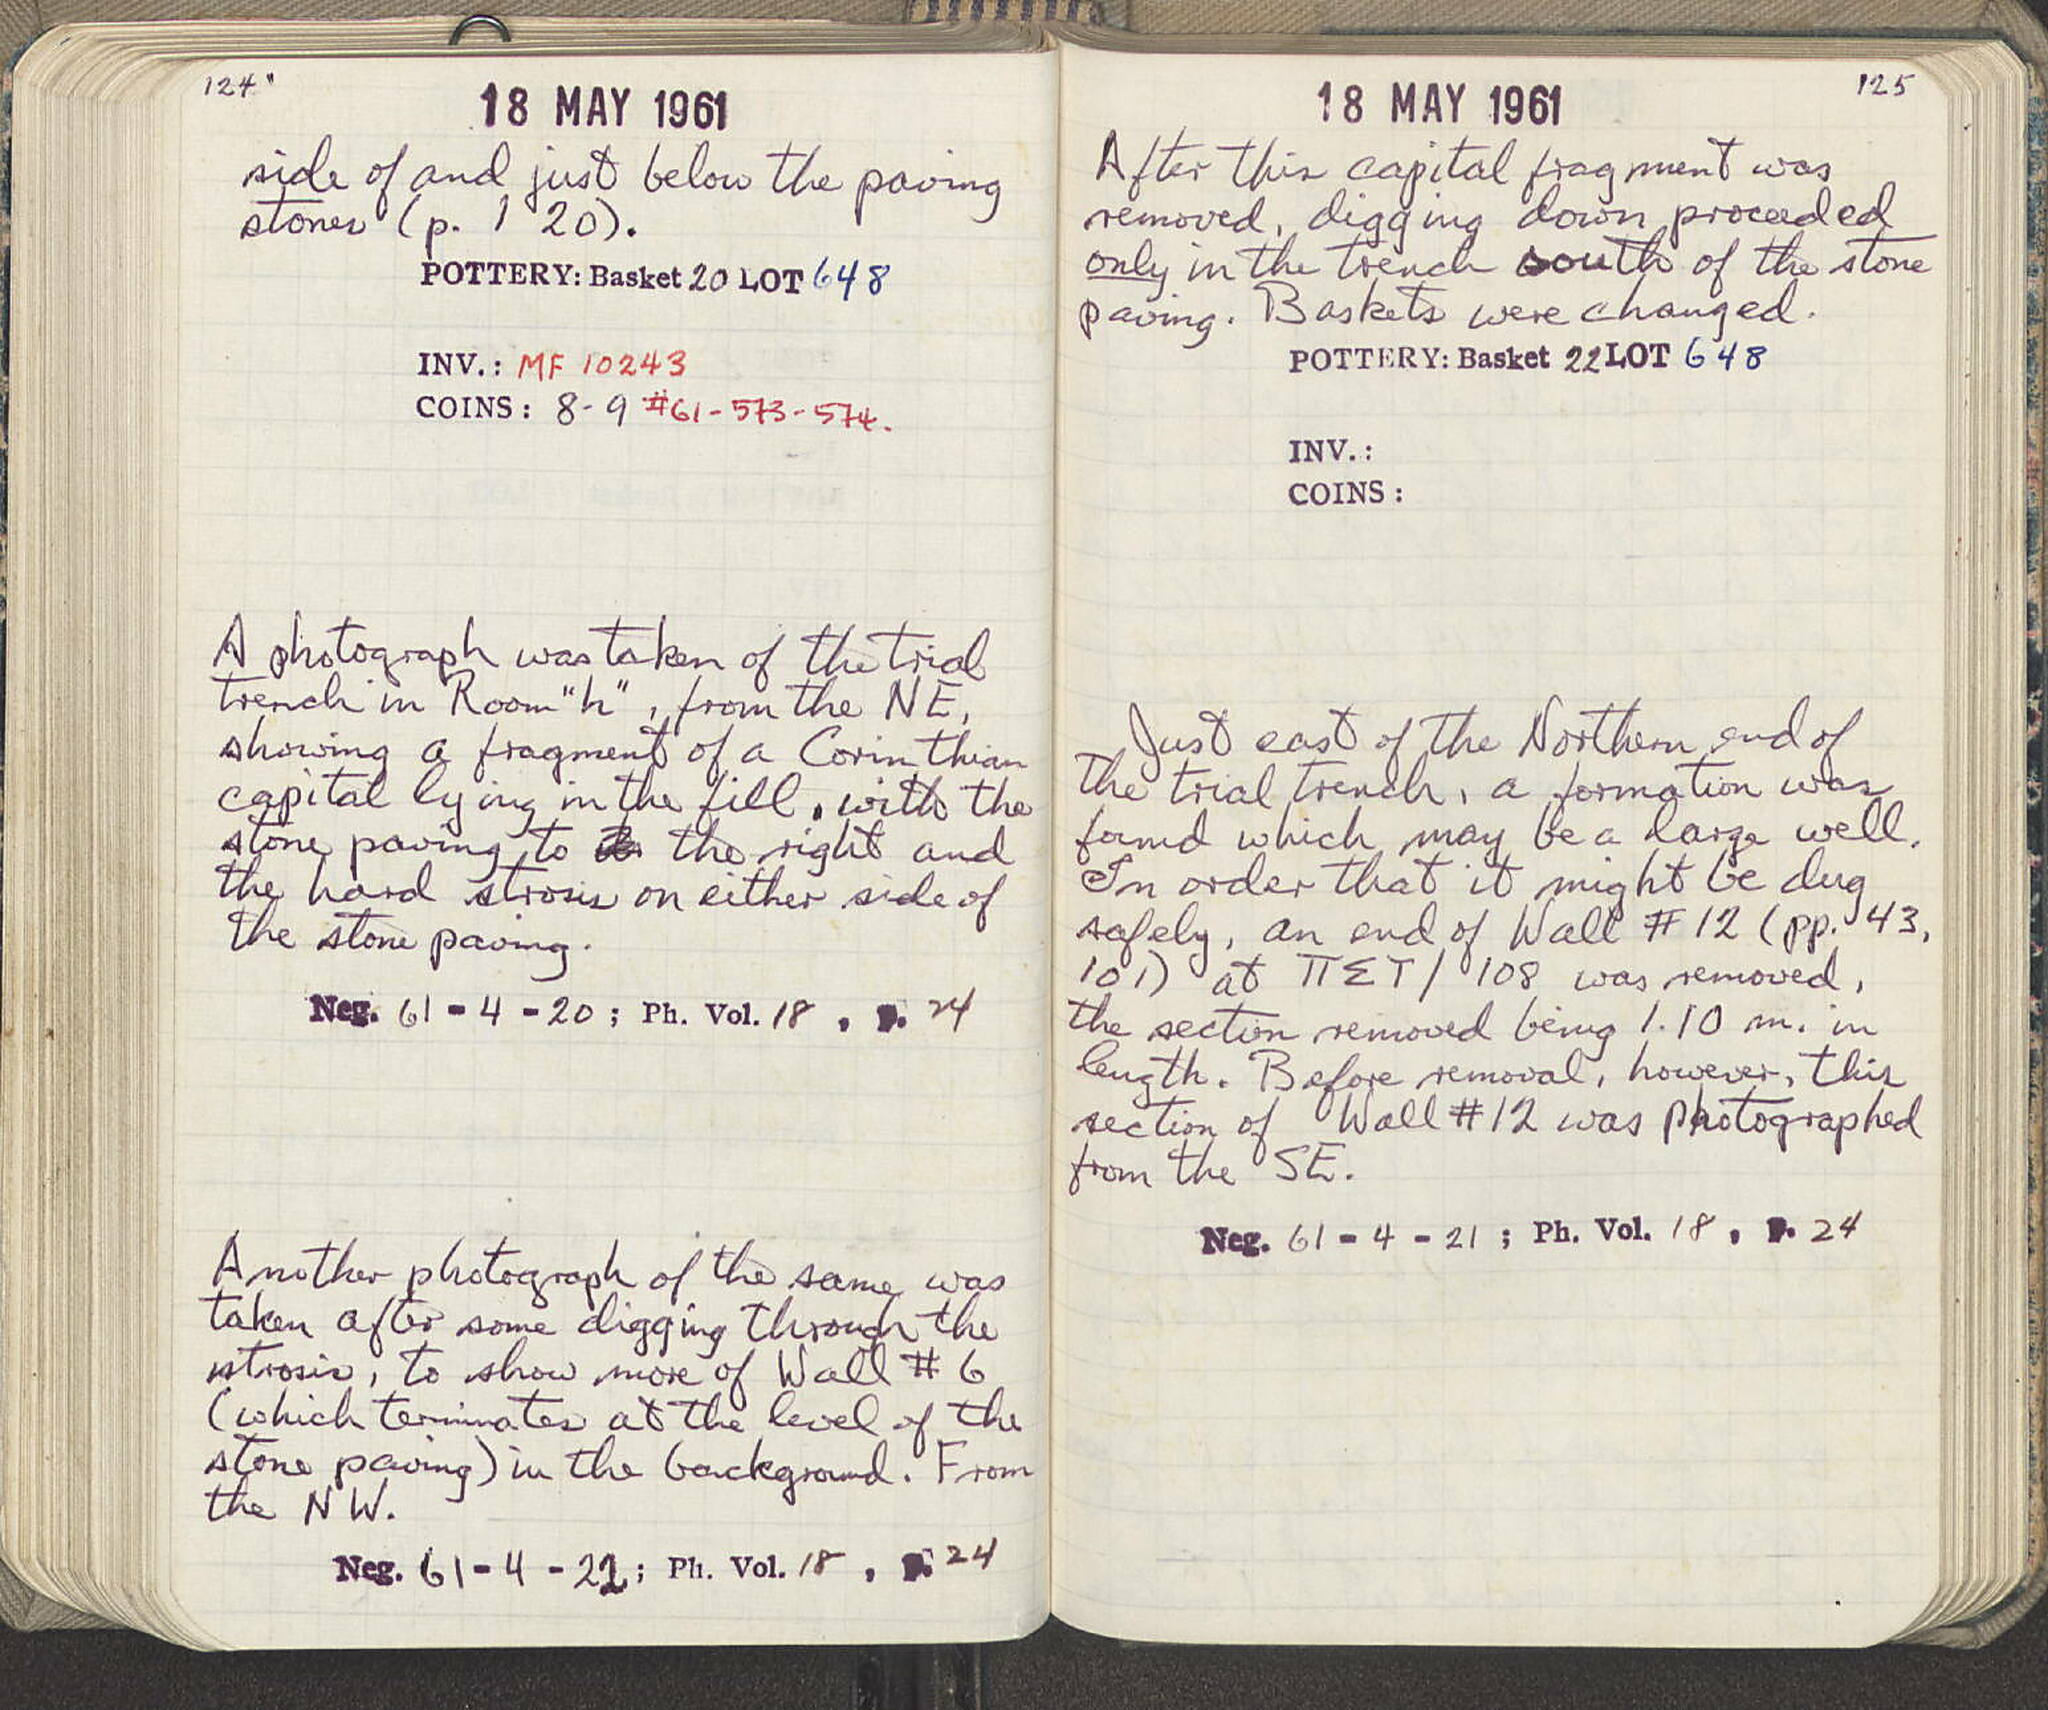 124"
18 MAY 1961
side of and just below the paving
stones (p. 120).
POTTERY: Basket 20 LOT 648
INV.: MF 10243
COINS: 8-9 #61-573-574.
A photograph was taken of the trial
trench in Room "h", from the NE,
showing a fragment of a Corinthian
capital lying in the fill, with the
stone paving to the right and
the hard strosis on either side of
the stone paving.
Neg. 61-4-20; Ph. Vol. 18, p. 24
Another photograph of the same was
taken after some digging through the
strosis, to show more of Wall #6
(which terminates at the level of the
stone paving) in the background. From
the NW.
Neg. 61-4-22; Ph. Vol. 18, p. 24
125
18 MAY 1961
After this capital fragment was
removed, digging down proceeded
only in the trench south of the stone
paving. Baskets were changed.
POTTERY: Basket 22 LOT 648
INV.:
COINS:
Just east of the Northern end of
the trial trench, a formation was
found which may be a large well.
In order that it might be dug
safely, an end of Wall #12 (pp. 43,
101) at ΠΣΤ/108 was removed,
the section removed being 1.10 m. in
length. Before removal, however, this
section of Wall #12 was photographed
from the SE.
Neg. 61-4-21; Ph. Vol. 18, p. 24